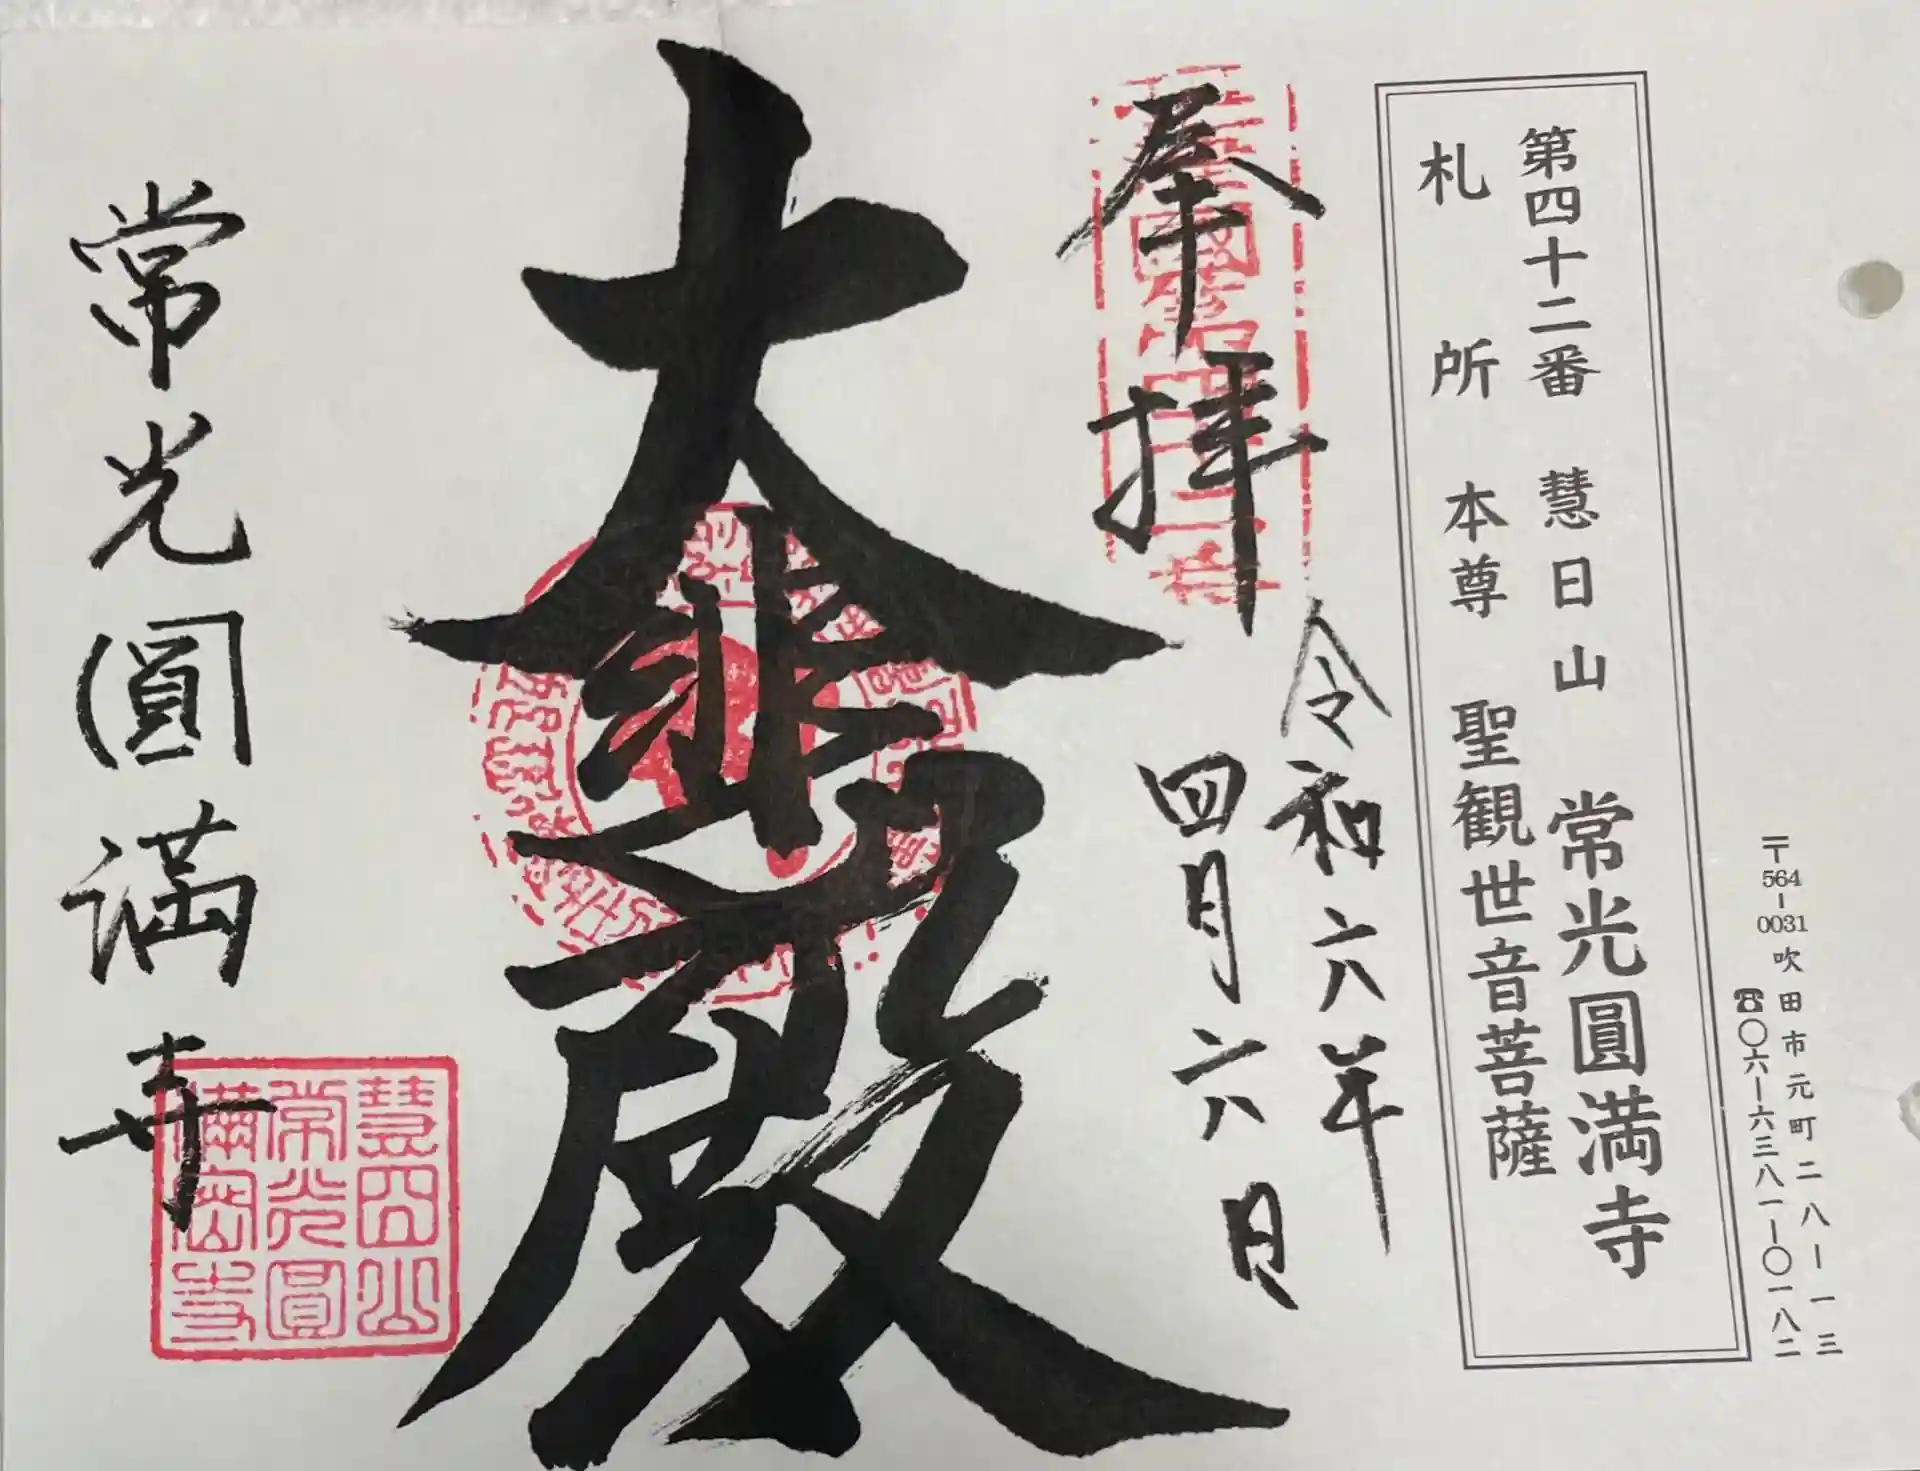 〒564-0031 吹田市元町二八ー一三
☎〇六ー六三八一ー〇一八二
第四十二番 慧日山 常光圓満寺
札所 本尊 聖観世音菩薩
奉拝
令和六年
四月六日
大悲殿
常光圓満寺
慧日山
常光圓
満寺